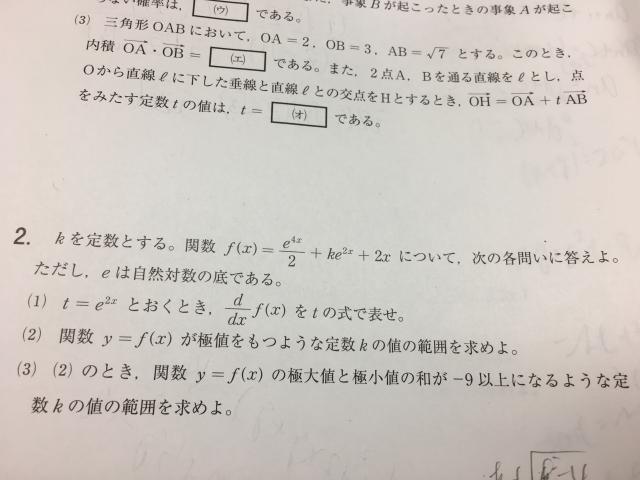 らない確率は, (ウ) である。 事象Bが起こったときの事象Aが起こ
(3) 三角形OABにおいて, OA=2, OB=3, AB=√7 とする。このとき,
内積 OA・OB= (エ) である。また, 2点A, Bを通る直線をℓとし, 点
Oから直線ℓに下した垂線と直線ℓとの交点をHとするとき, OH=OA+tAB
をみたす定数tの値は, t= (オ) である。
2. kを定数とする。関数 f(x)=e^{4x}/2+ke^{2x}+2x について, 次の各問いに答えよ。
ただし, eは自然対数の底である。
(1) t=e^{2x} とおくとき, d/dx f(x) をtの式で表せ。
(2) 関数 y=f(x) が極値をもつような定数kの値の範囲を求めよ。
(3) (2)のとき, 関数 y=f(x) の極大値と極小値の和が-9以上になるような定
数kの値の範囲を求めよ。